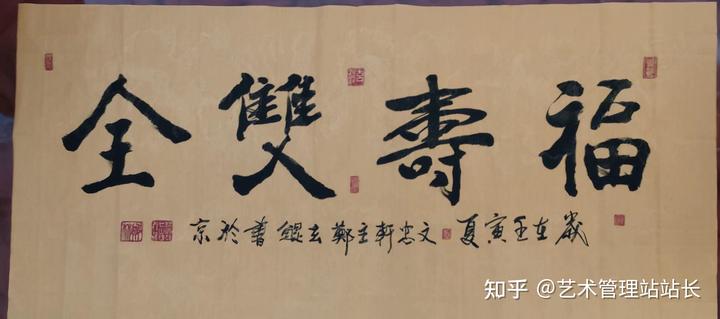 福壽雙全
歲在壬寅夏文忠軒主鄭玄鯤書於京
知乎 @艺术管理站站长